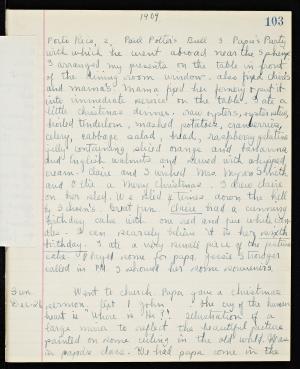 1909
103
Porto Rico, 2, Paul Potter's Bull 3 Papa's Party
with which he went abroad near the Sphinx
I arranged my presents on the table in front
of the dining room window. also fixed Claire's
and mama's. Mama had her fernery put it
into immediate service on the table. I ate a
little Christmas dinner: raw oysters,
broiled tenderloin, mashed potatoes, cranberries,
celery, cabbage salad, bread, raspberry gelatine
jelly containing sliced orange and banana
and English walnuts and served with whipped
cream. Claire and I wished Mrs. Smith
and a Merry Christmas. I drew Claire
on her sled. We slid 2 times down the hill
by great fun. Claire had a cunning
birthday cake with one red and five white
I can scarcely believe it is her sixth
birthday. I ate a very small piece of the
cake. Played some for papa, Jessie Strodger
called in PM I showed her some
Sun. Went to church. Papa gave a Christmas
Dec. 26 sermon. Text 1 John The cry of the human
heart is "Where is He?" Illustration of a
large mirror to reflect the beautiful picture
painted on some ceiling in the old world. Was
in papa's class. We had papa come in the